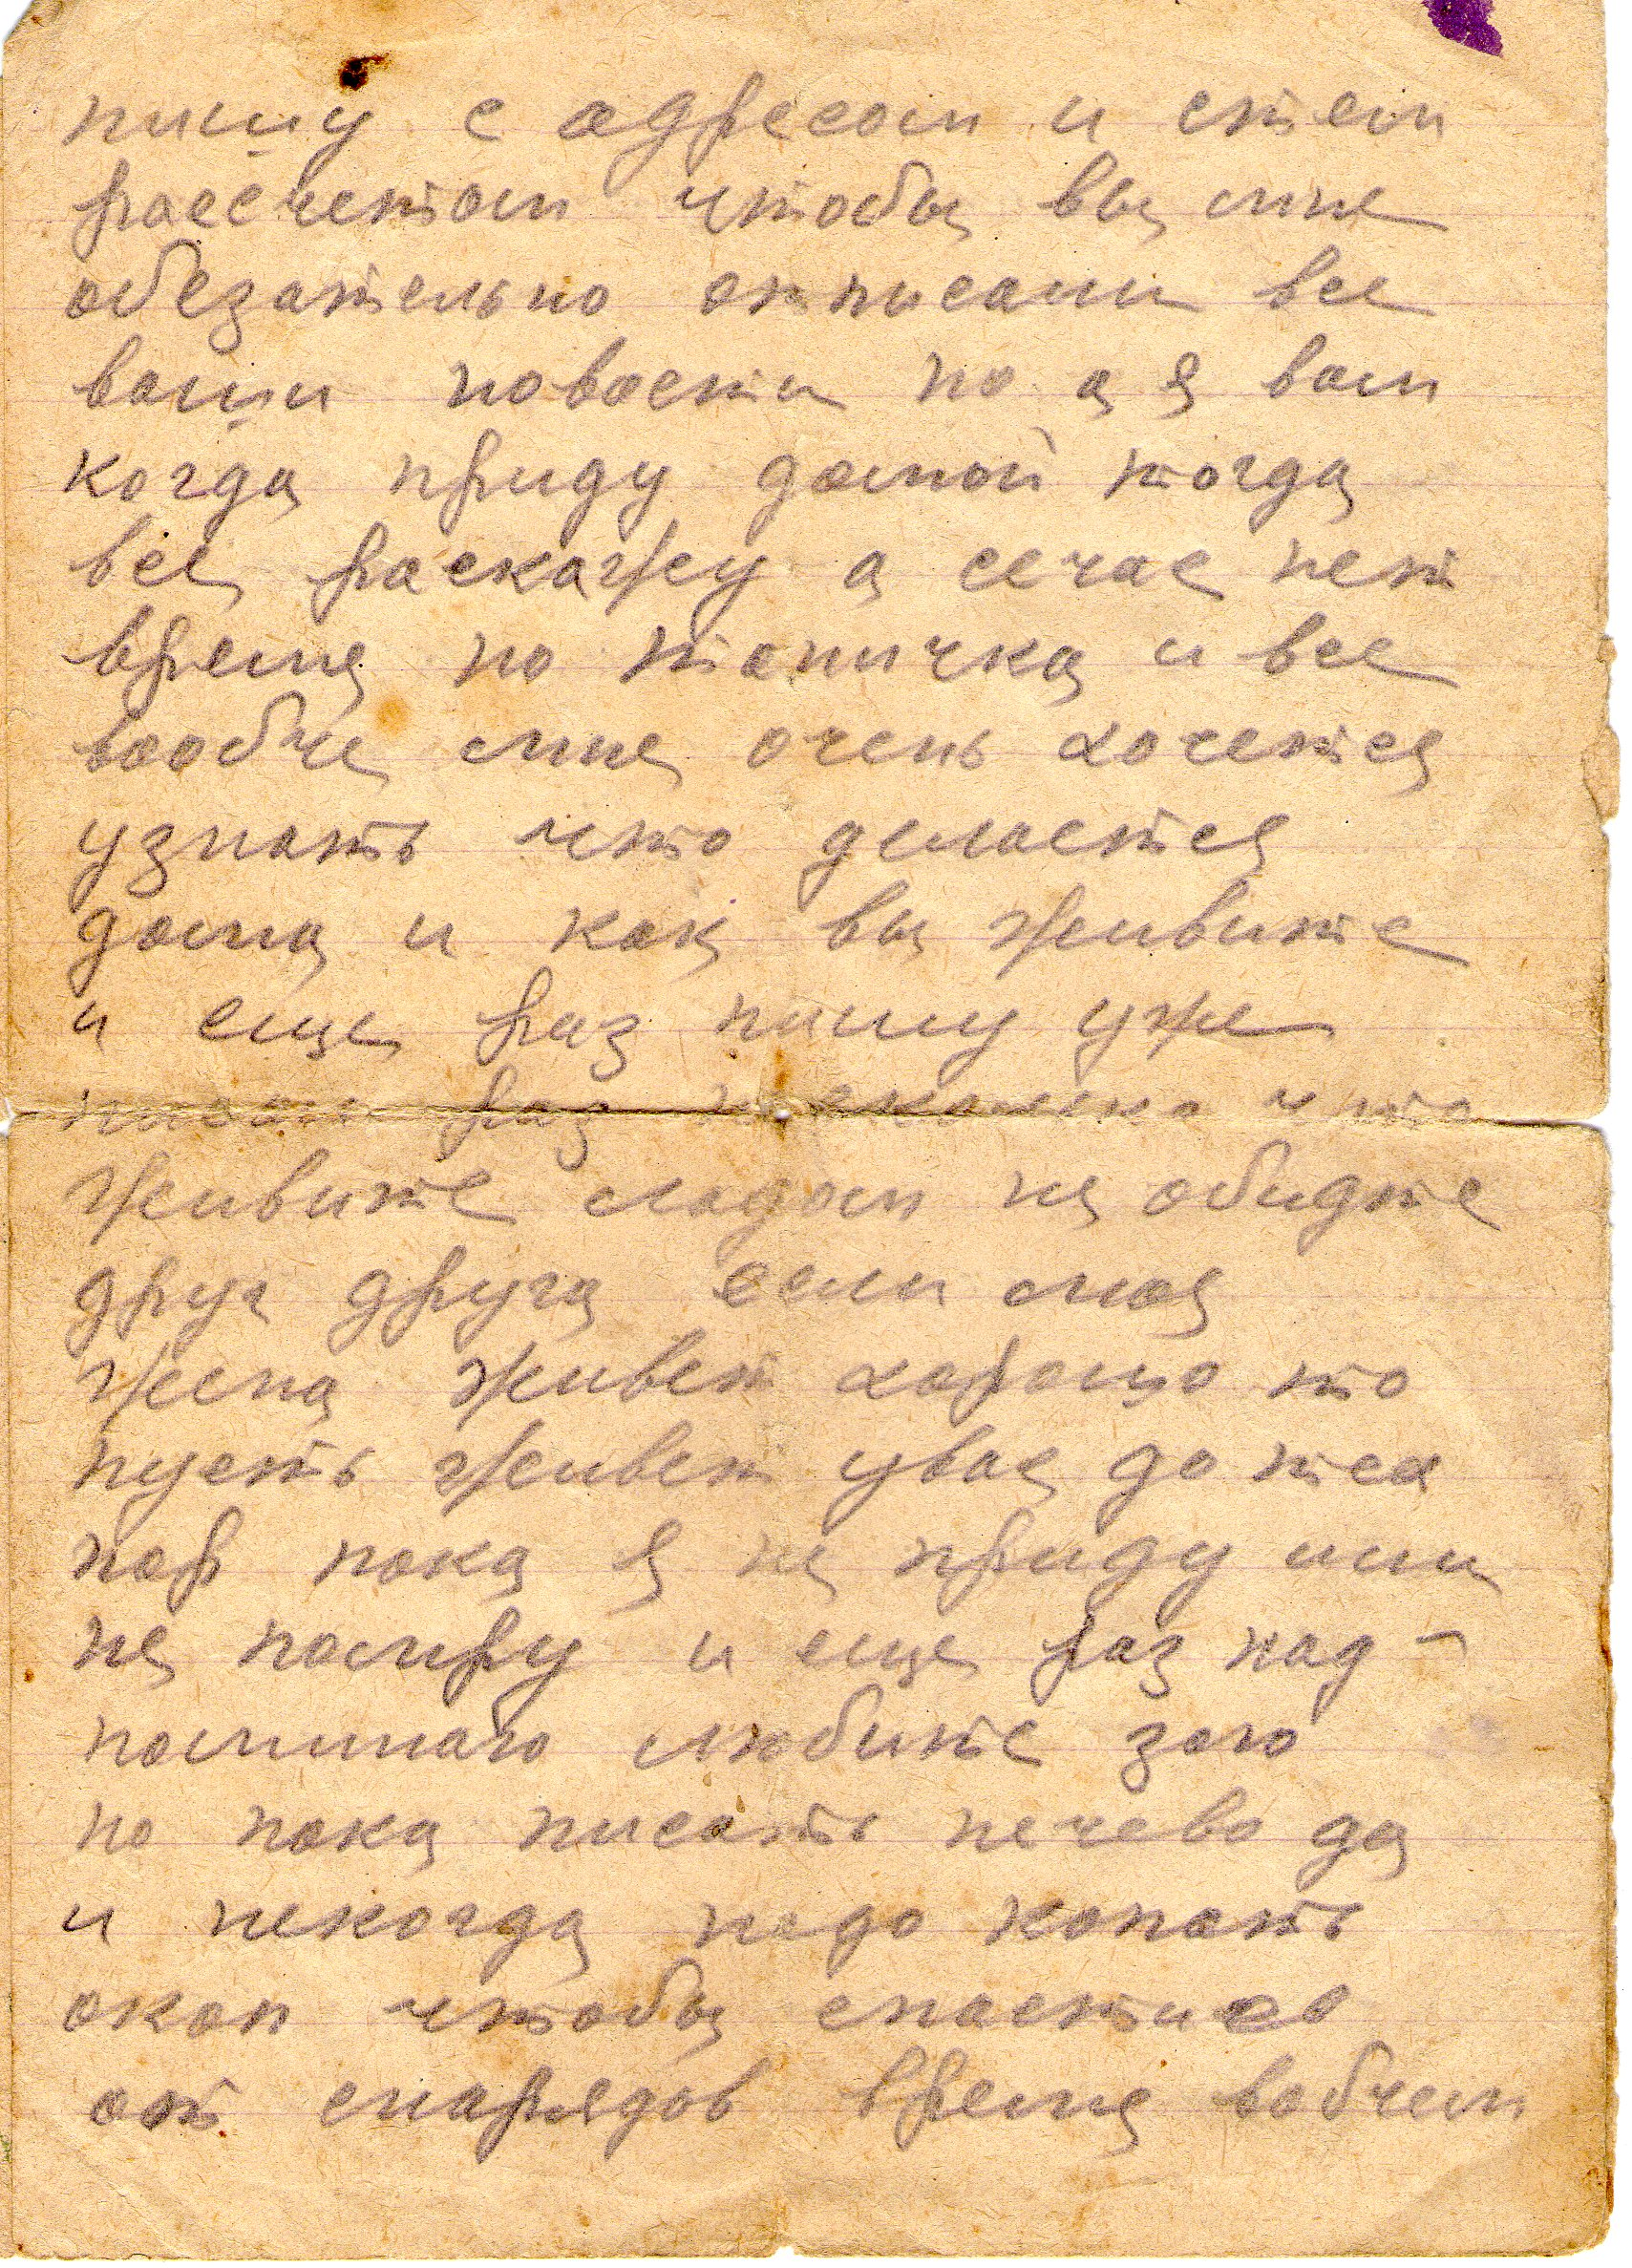 пишу с адресом и стем
рассчетом чтобы вы мне
обезательно отписали все
ваши новости но а я вам
когда приду домой тогда
все раскажу а сечас нет
время но тоничка и все
вообче мне очень хочется
узнать что делается
дома и как вы живите
и еще раз пишу уже
писал раз несколько что
живите ладом не обидте
друг друга если моя
жена живет хорошо то
пусть живет увас до тех
пор пока я не приду или
не помру и еще раз над-
поминаю любите зою
но пока писать нечево да
и некогда надо копать
окоп чтобы спастись
от снарядов время вобчем